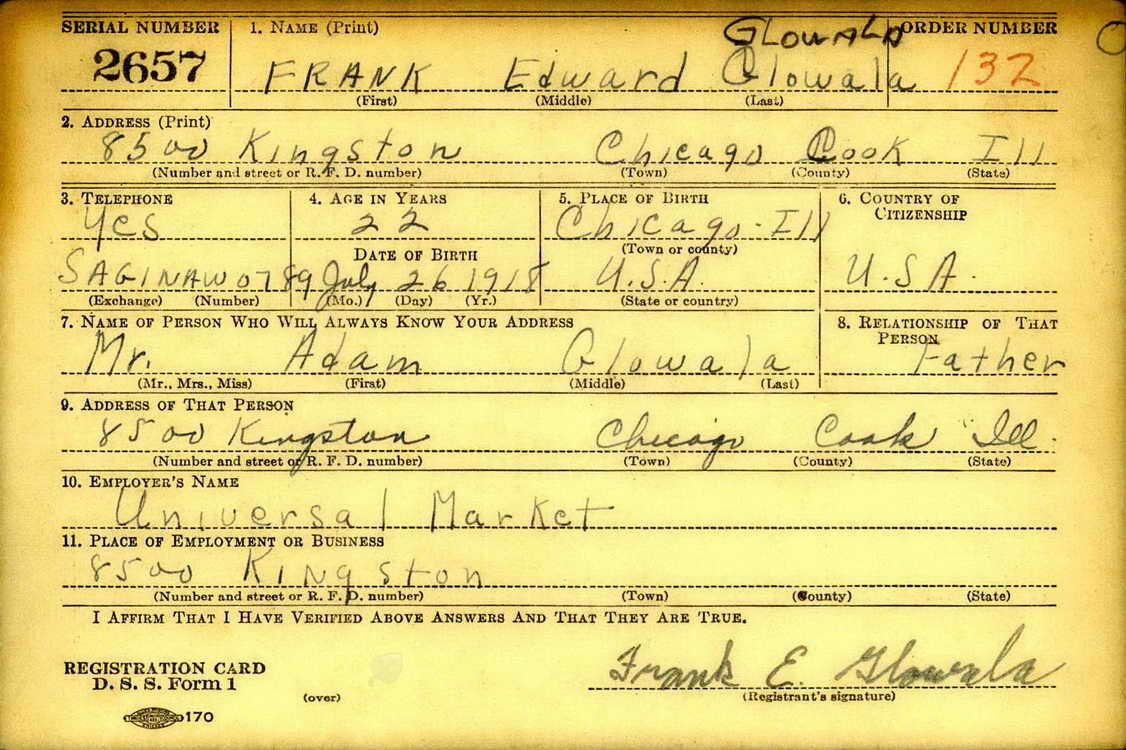 SERIAL NUMBER 1. NAME (Print) GLOWALA ORDER NUMBER
2657 FRANK Edward Glowala 132
(First) (Middle) (Last)
2. ADDRESS (Print)
8500 Kingston Chicago Cook Ill
(Number and street or R. F. D. number) (Town) (County) (State)
3. TELEPHONE 4. AGE IN YEARS 5. PLACE OF BIRTH 6. COUNTRY OF
CITIZENSHIP
Yes 22 Chicago - Ill
DATE OF BIRTH (Town or county)
SAGINAW 0789 July 26 1918 U.S.A. U.S.A.
(Exchange) (Number) (Mo.) (Day) (Yr.) (State or country)
7. NAME OF PERSON WHO WILL ALWAYS KNOW YOUR ADDRESS 8. RELATIONSHIP OF THAT
PERSON
Mr. Adam Glowala Father
(Mr., Mrs., Miss) (First) (Middle) (Last)
9. ADDRESS OF THAT PERSON
8500 Kingston Chicago Cook Ill.
(Number and street or R. F. D. number) (Town) (County) (State)
10. EMPLOYER'S NAME
Universal Market
11. PLACE OF EMPLOYMENT OR BUSINESS
8500 Kingston
(Number and street or R. F. D. number) (Town) (County) (State)
I AFFIRM THAT I HAVE VERIFIED ABOVE ANSWERS AND THAT THEY ARE TRUE.
REGISTRATION CARD
D. S. S. Form 1
Frank E. Glowala
(over) (Registrant's signature)
170